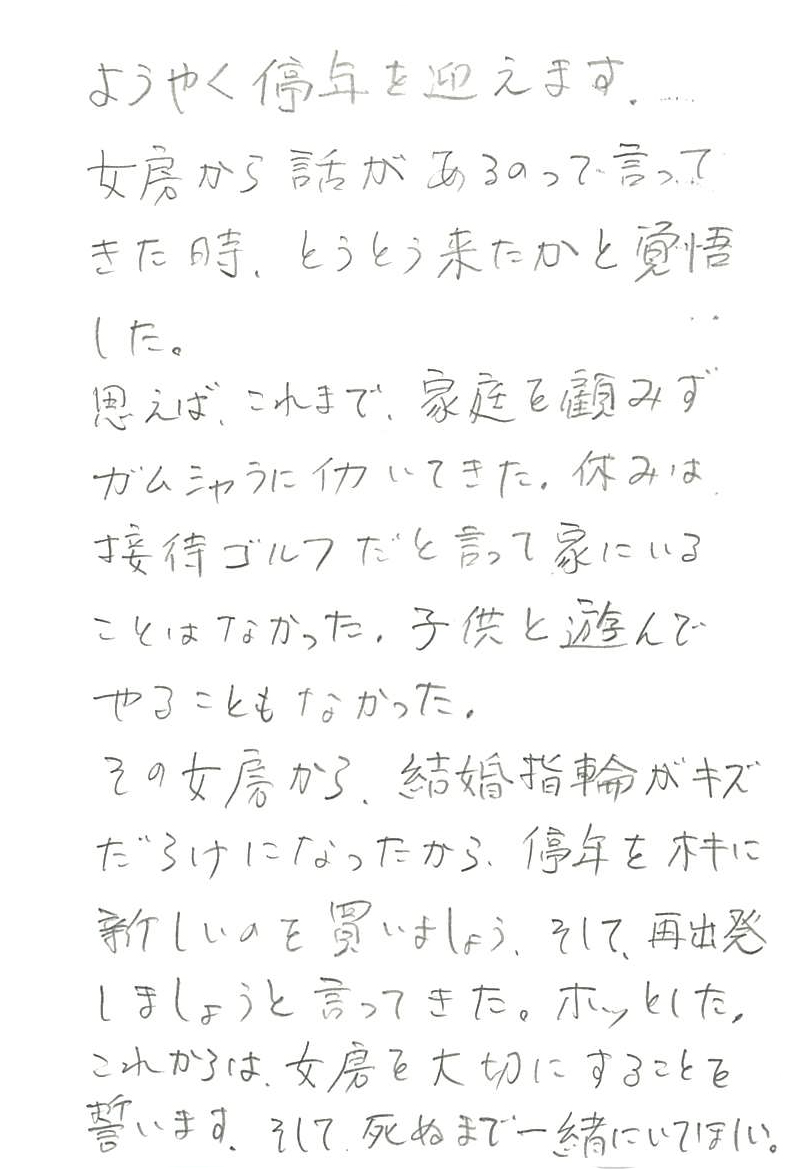 ようやく停年を迎えます.
女房から話があるのって言って
きた時、とうとう来たかと覚悟
した。
思えば、これまで、家庭を顧みず
ガムシャラに仂いてきた。休みは
接待ゴルフだと言って家にいる
ことはなかった。子供と遊んで
やることもなかった。
その女房から、結婚指輪がキズ
だらけになったから、停年を才キに
新しいのを買いましょう、そして、再出発
しましょうと言ってきた。ホッとした。
これからは、女房を大切にすることを
誓います、そして、死ぬまで一緒にいてほしい。